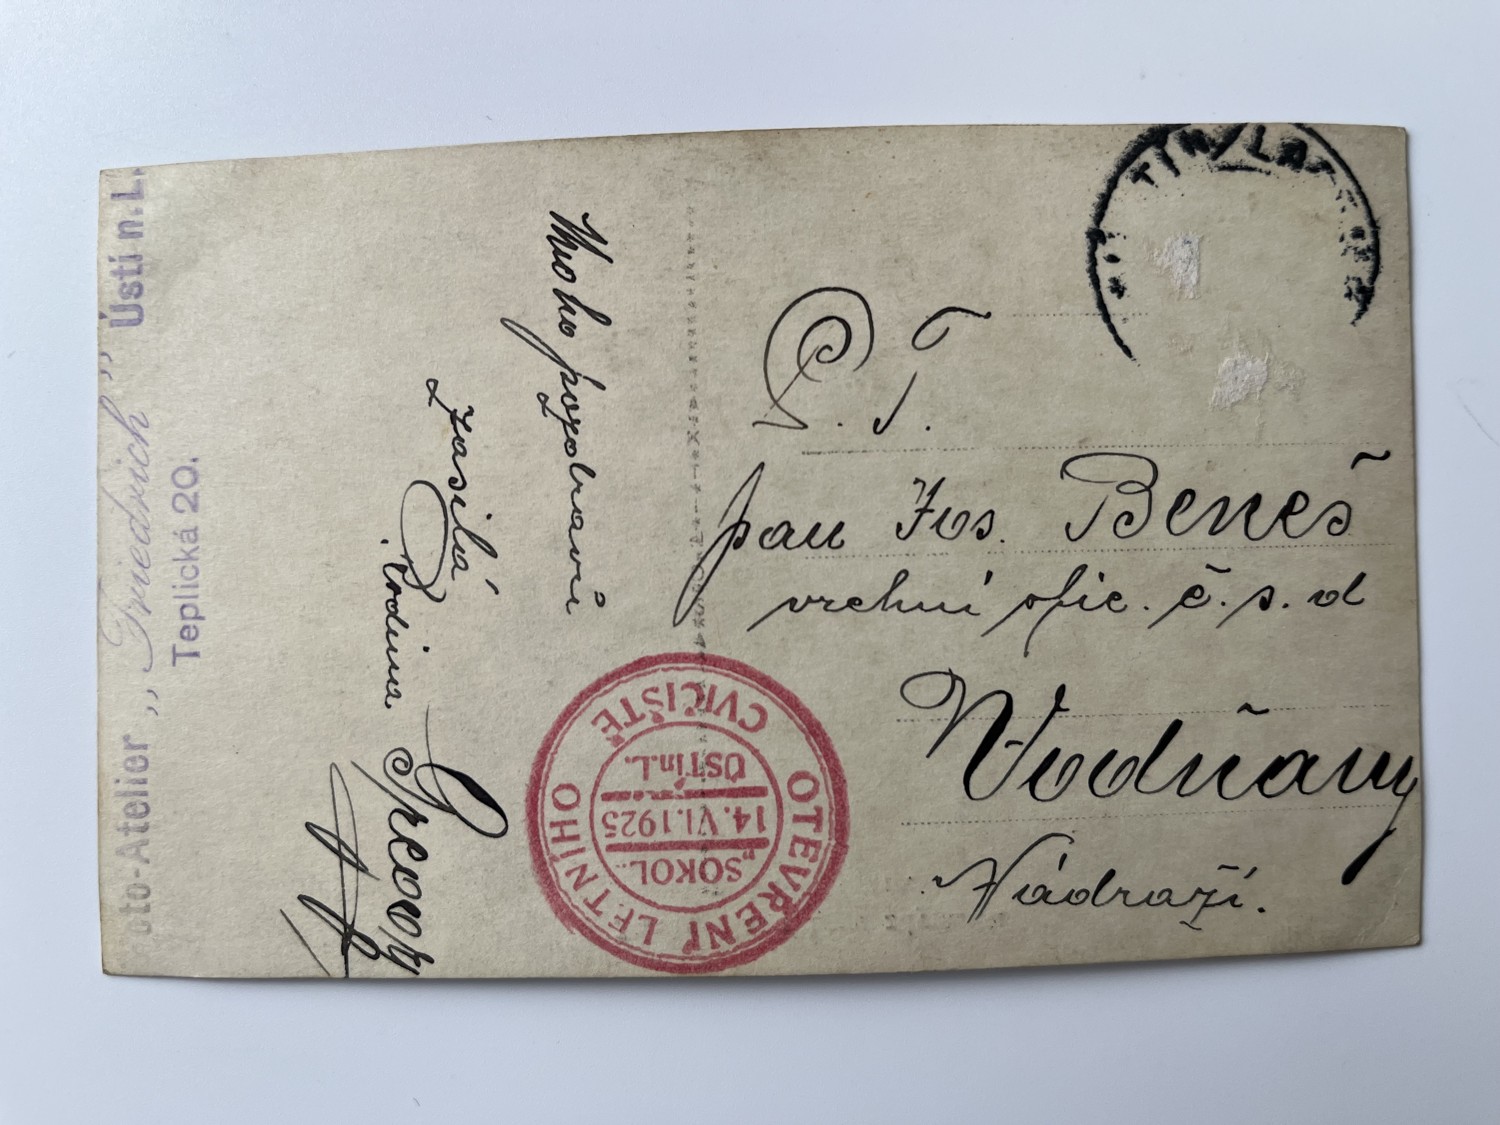 Foto-Atelier „Friedrich" Ústí n. L.
Teplická 20.
Mnoho pozdravů
zasílá
Rodina
OTEVŘENÍ LETNÍHO CVIČIŠTĚ
„SOKOL"
14.VI.1925
ÚSTÍ n.L.
P. T.
pan Jos. Beneš
vrchní ofic. č. s. d
Vodňany
Nádraží.